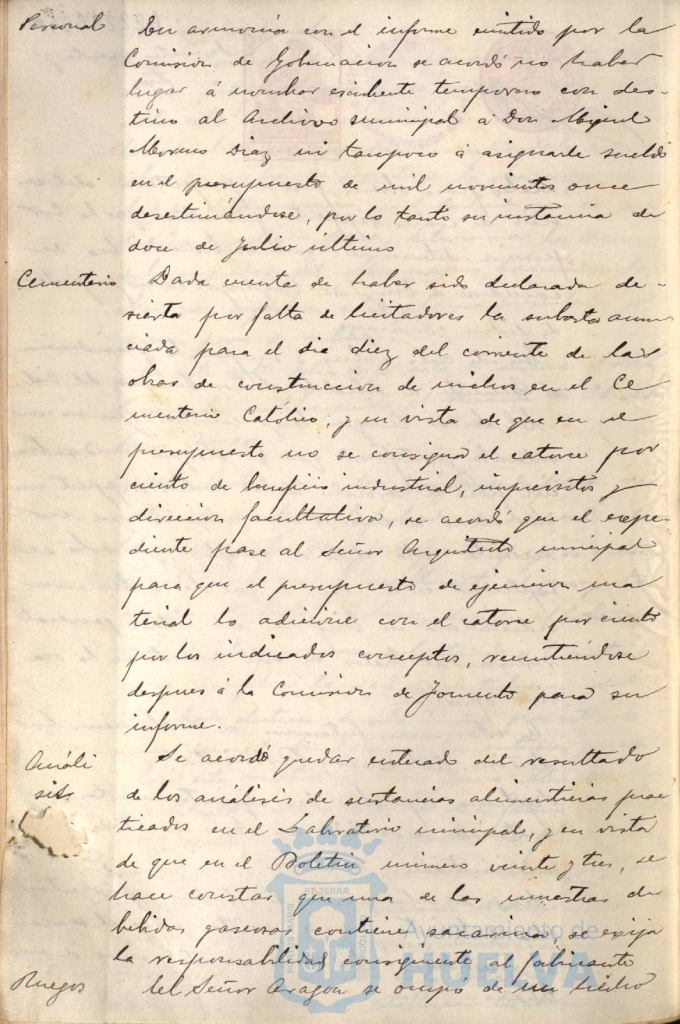 Personal
En armonía con el informe emitido por la
Comision de Gobernacion se acordó no haber
lugar á nombrar escribiente temporero con des-
tino al Archivo municipal á Don Miguel
Moreno Diaz ni tampoco á asignarle sueldo
en el presupuesto de mil novecientos once
desestimándose, por lo tanto su instancia de
doce de Julio último
Cementerio
Dada cuenta de haber sido declarada de-
sierta por falta de licitadores la subasta anun
ciada para el dia diez del corriente de las
obras de construccion de nichos en el Ce
menterio Católico, y en vista de que en el
presupuesto no se consigna el catorce por
ciento de beneficio industrial, imprevistos y
direccion facultativa, se acordó que el expe-
diente pase al Señor Arquitecto municipal
para que el presupuesto de ejecucion ma
terial lo adicione con el catorce por ciento
por los indicados conceptos, remitiéndose
despues á la Comision de Fomento para su
informe.
Análi
sis
Se acordó quedar enterado del resultado
de los análisis de sustancias alimenticias prac
ticados en el Laboratorio municipal, y en vista
de que en el Boletin número veinte y tres, se
hace constar que una de las muestras de
bebidas gaseosas contiene sacarina, se exija
la responsabilidad consiguiente al fabricante
Ruegos
El Señor Aragon se ocupó de un hecho
Ayuntamiento de
HUELVA